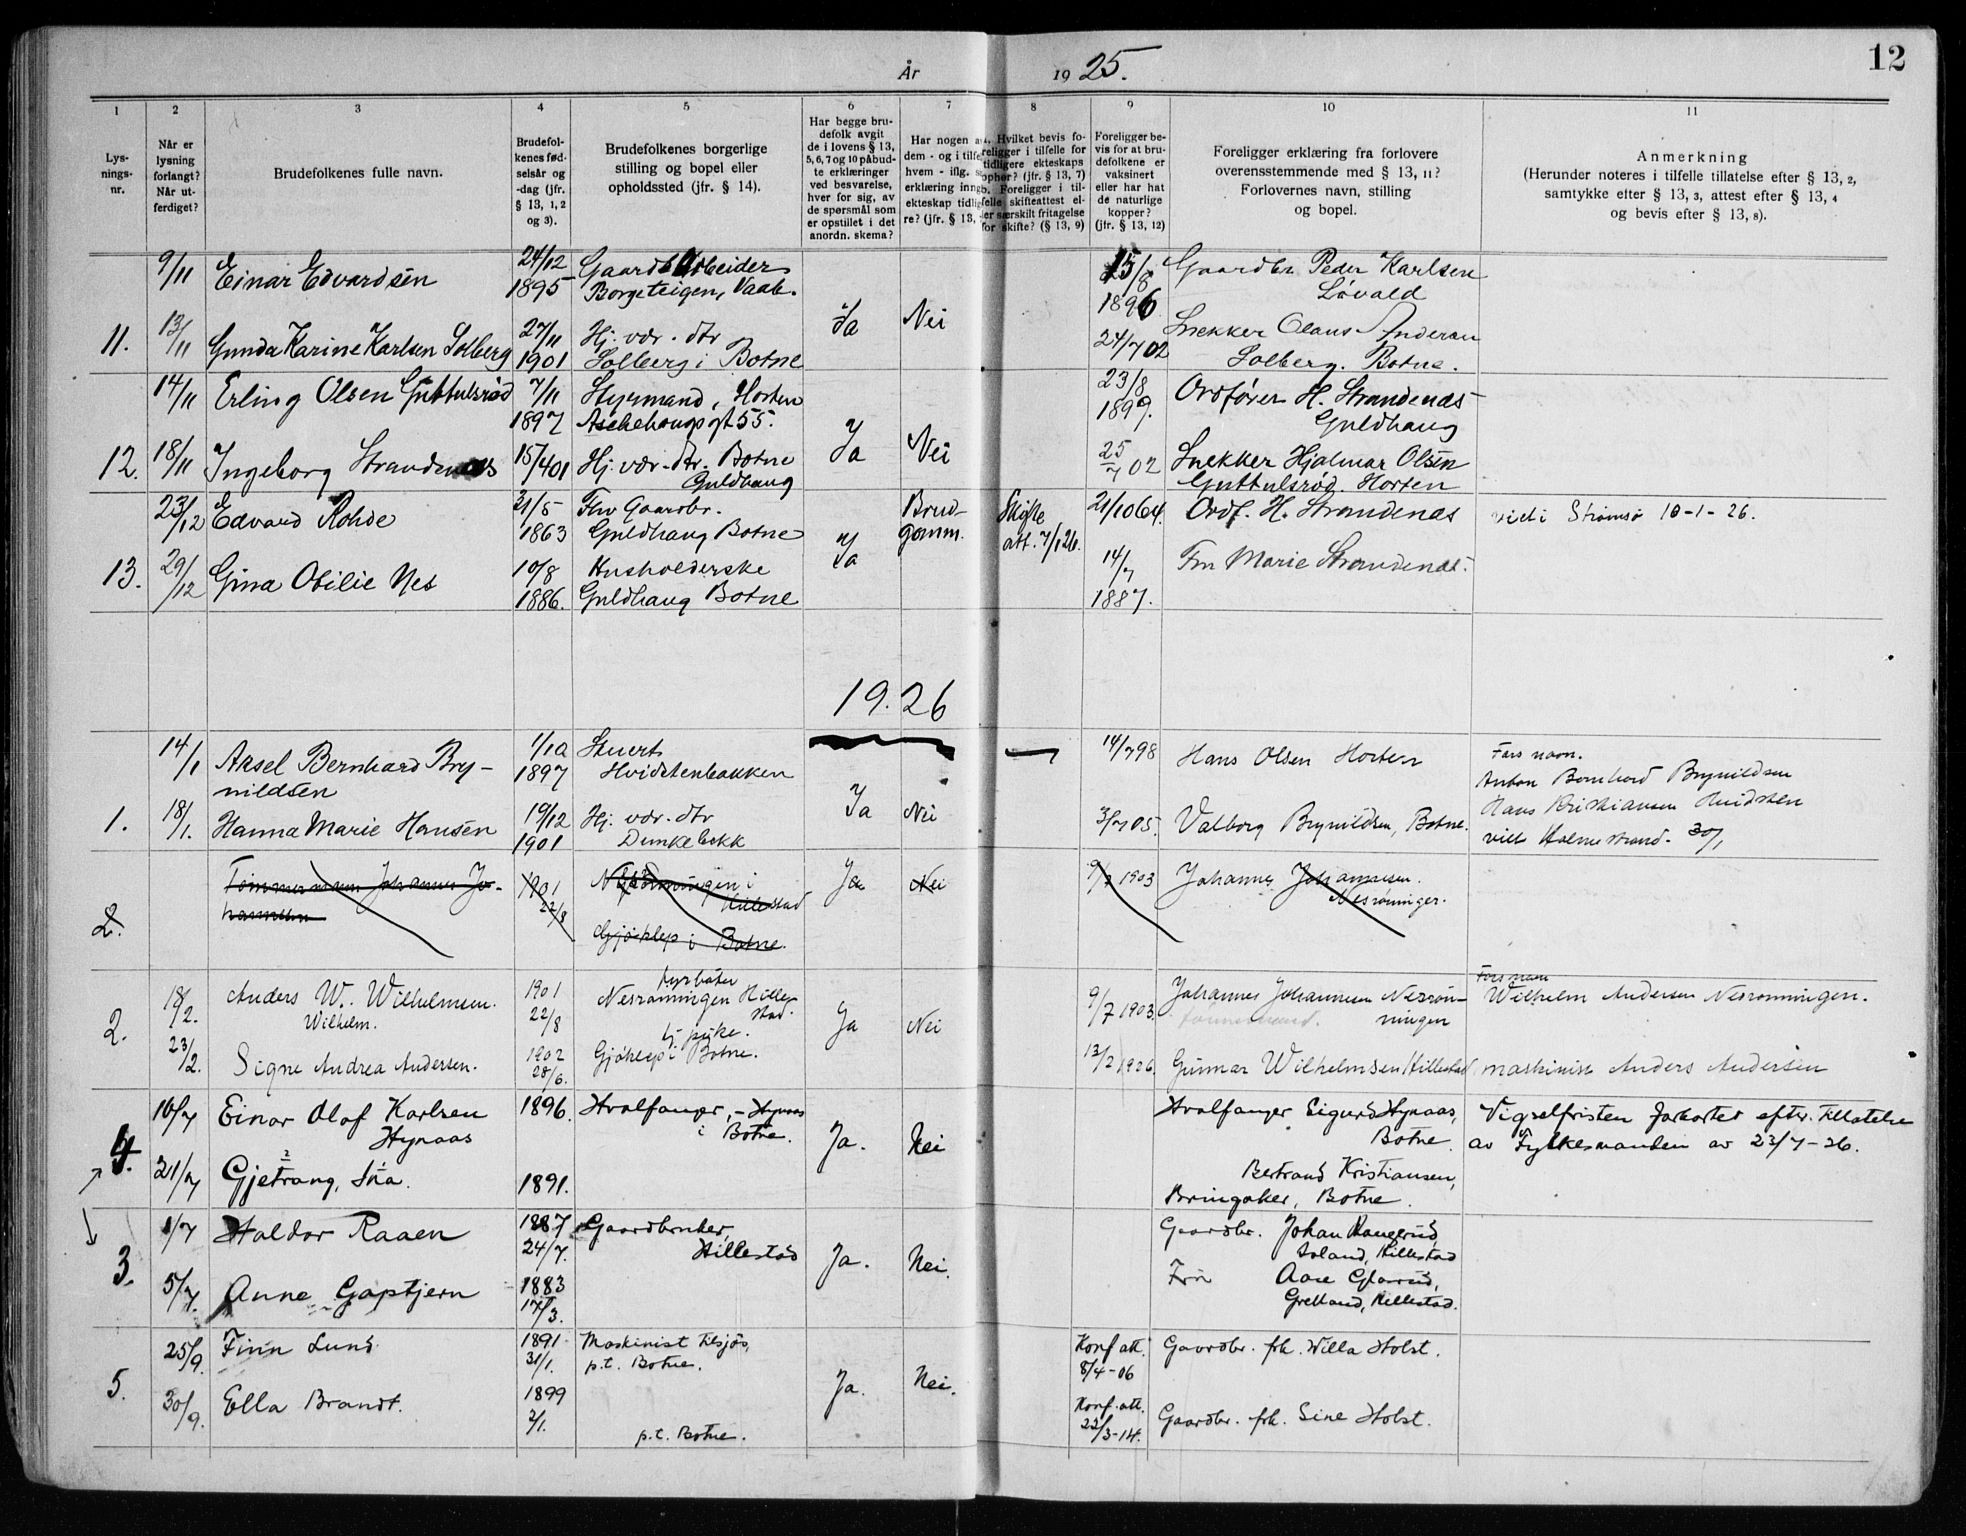 År 1925. 12
1 2 3 4 5 6 7 8 9 10 11
Lysningsnr.
Når er lysning forlangt? Når utferdiget?
Brudefolkenes fulle navn.
Brudefolkenes fødselsår og -dag (jfr. § 13, 1, 2 og 3).
Brudefolkenes borgerlige stilling og bopel eller opholdssted (jfr. § 14).
Har begge brudefolk avgit de i lovens § 13, 5, 6, 7 og 10 påbudte erklæringer ved besvarelse, hver for sig, av de spørsmål som er opstillet i det anordn. skema?
Foreligger bevis for at brudefolkene er vaksinert eller har hat de naturlige kopper? (jfr. § 13, 12)
Foreligger erklæring fra forlovere overensstemmende med § 13, 11? Forlovernes navn, stilling og bopel.
Anmerkning
(Herunder noteres i tilfelle tillatelse efter § 13, 2, samtykke efter § 13, 3, attest efter § 13, 4 og bevis efter § 13, 8).
9/11 Einar Edvardsen 24/12 1895 Gaardbarbeider Borgeteigen, Vaale. 15/8 1896 Gaardbr Peder Karlsen Løvald
11. 13/11 Gunda Karine Karlsen Solberg 27/11 1901 Hj. vær. dtr Solberg i Botne Ja Nei 24/7 02 Snekker Olaus Andersen Solberg. Botne.
14/11 Erling Olsen Guttulsrød 7/11 1897 Styrmand, Horten Aschehougs gt 55. 23/8 1899. Ordfører H. Strandenæs Guldhaug
12. 18/11 Ingeborg Strandenæs 15/4 01 Hj. vær. dtr. Botne Guldhaug Ja Nei 25/7 02 Snekker Hjalmar Olsen Guttulsrød. Horten
23/12 Edvard Rohde 31/5 1863 Fhv Gaardbr. Guldhaug Botne Brudgomm. Skifte att. 7/1 26. 21/10 64. Ordf. H. Strandenæs viet i Strømsø 10-1-26.
13. 29/12 Gina Otilie Nes 10/8 1886. Husholderske Guldhaug Botne Ja 14/7 1887. Fru Marie Strandenæs.
19.26
14/1 Aksel Bernhard Brynildsen 1/10 1897 Stuert Hvidstenbakken 14/7 98 Hans Olsen Horten Fars navn. Anton Bernhard Brynildsen
1. 18/1. Hanna Marie Hansen 19/12 1901 Hj. vær. dtr Dunkebekk Ja Nei 3/7 05. Valborg Brynildsen, Botne. Hans Kristiansen Hvidsten viet Holmestrand. 30/1
2. Tømmermann Johannes Johannsen 1901 22/8 Nesrønningen i Hillestad Gjøklep i Botne. Ja Nei 9/7 1903 Johannes Johannesen. Nesrønningen.
18/2. Anders W. Wilhelmsen. Wilhelm. 1901 22/8 fyrbøter Nesrønningen Hillestad. 9/7 1903. Johannes Johannesen Nesrønningen tømmermand. Fars navn Wilhelm Andersen Nesrønningen.
2. 23/2. Signe Andrea Andersen. 1902 28/6. tj. pike. Gjøklep i Botne. Ja Nei 13/2 1926. Gunnar Wilhelmsen Hillestad maskinist Anders Andersen
10/7 Einar Olaf Karlsen Hynaas 1896. Hvalfanger, - Hynaas i Botne. Hvalfanger Sigurd Hynaas, Botne. Vigselfristen forkortet efter tillatelse av Fylkesmanden av 23/7-26.
4. 21/7 Gjetrang, Ina. 1891. Ja. Nei Bertrand Kristiansen, Bringaker, Botne.
1/7 Haldor Raaen 1887 24/7. Gaardbruker, Hillestad Gaardbr. Johan Haugerud, Island, Hillestad
3. 5/7. Anne Goptjern 1883 17/3. Ja. Nei. Frøi Aase Glaarud, Gretland, Hillestad.
25/9. Finn Lund 1891 31/1. Maskinist tilsjøs, p.t. Botne. Konf att. 8/4-06 Gaardbr. frk. Willa Holst.
5. 30/9. Ella Brandt. 1899 2/1. p.t. Botne. Ja. Nei. Konf. att. 22/3-14. Gaardbr. frk. Sine Holst.